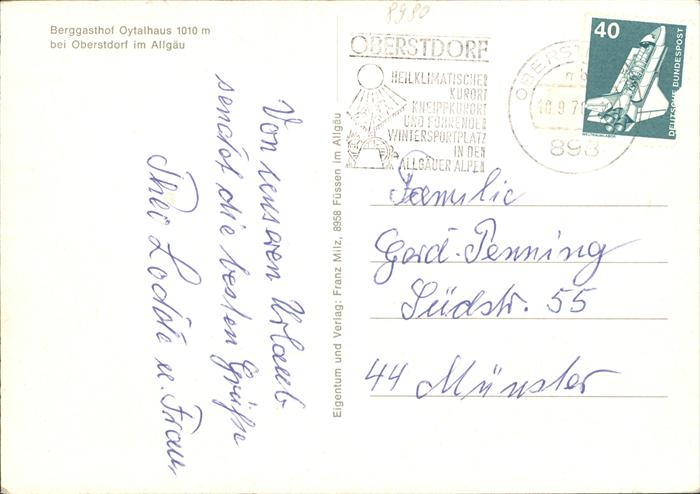 8980
Berggasthof Oytalhaus 1010 m
bei Oberstdorf im Allgäu
Von unseren Urlaub
sendet die besten Grüße
Theo Lodde u. Frau
Eigentum und Verlag: Franz Milz, 8958 Füssen im Allgäu
OBERSTDORF
HEILKLIMATISCHER
KURORT
KNEIPPKURORT
UND FÜHRENDER
WINTERSPORTPLATZ
IN DEN
ALLGÄUER ALPEN
893
40
DEUTSCHE BUNDESPOST
Familie
Gerd Penning
Südstr. 55
44 Münster